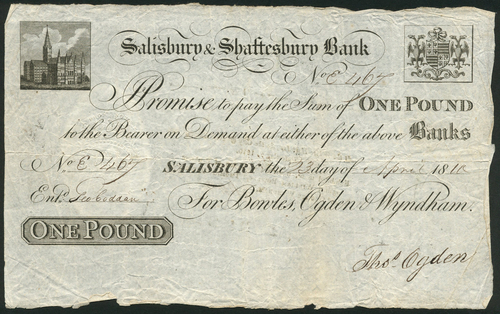 Salisbury & Shaftesbury Bank
No. E 467
I Promise to pay the Sum of ONE POUND
to the Bearer on Demand at either of the above Banks
No. E 467 SALISBURY the 23 day of April 1810
Entd. Geo Goddard
For Bowles, Ogden & Wyndham.
ONE POUND
Thos. Ogden